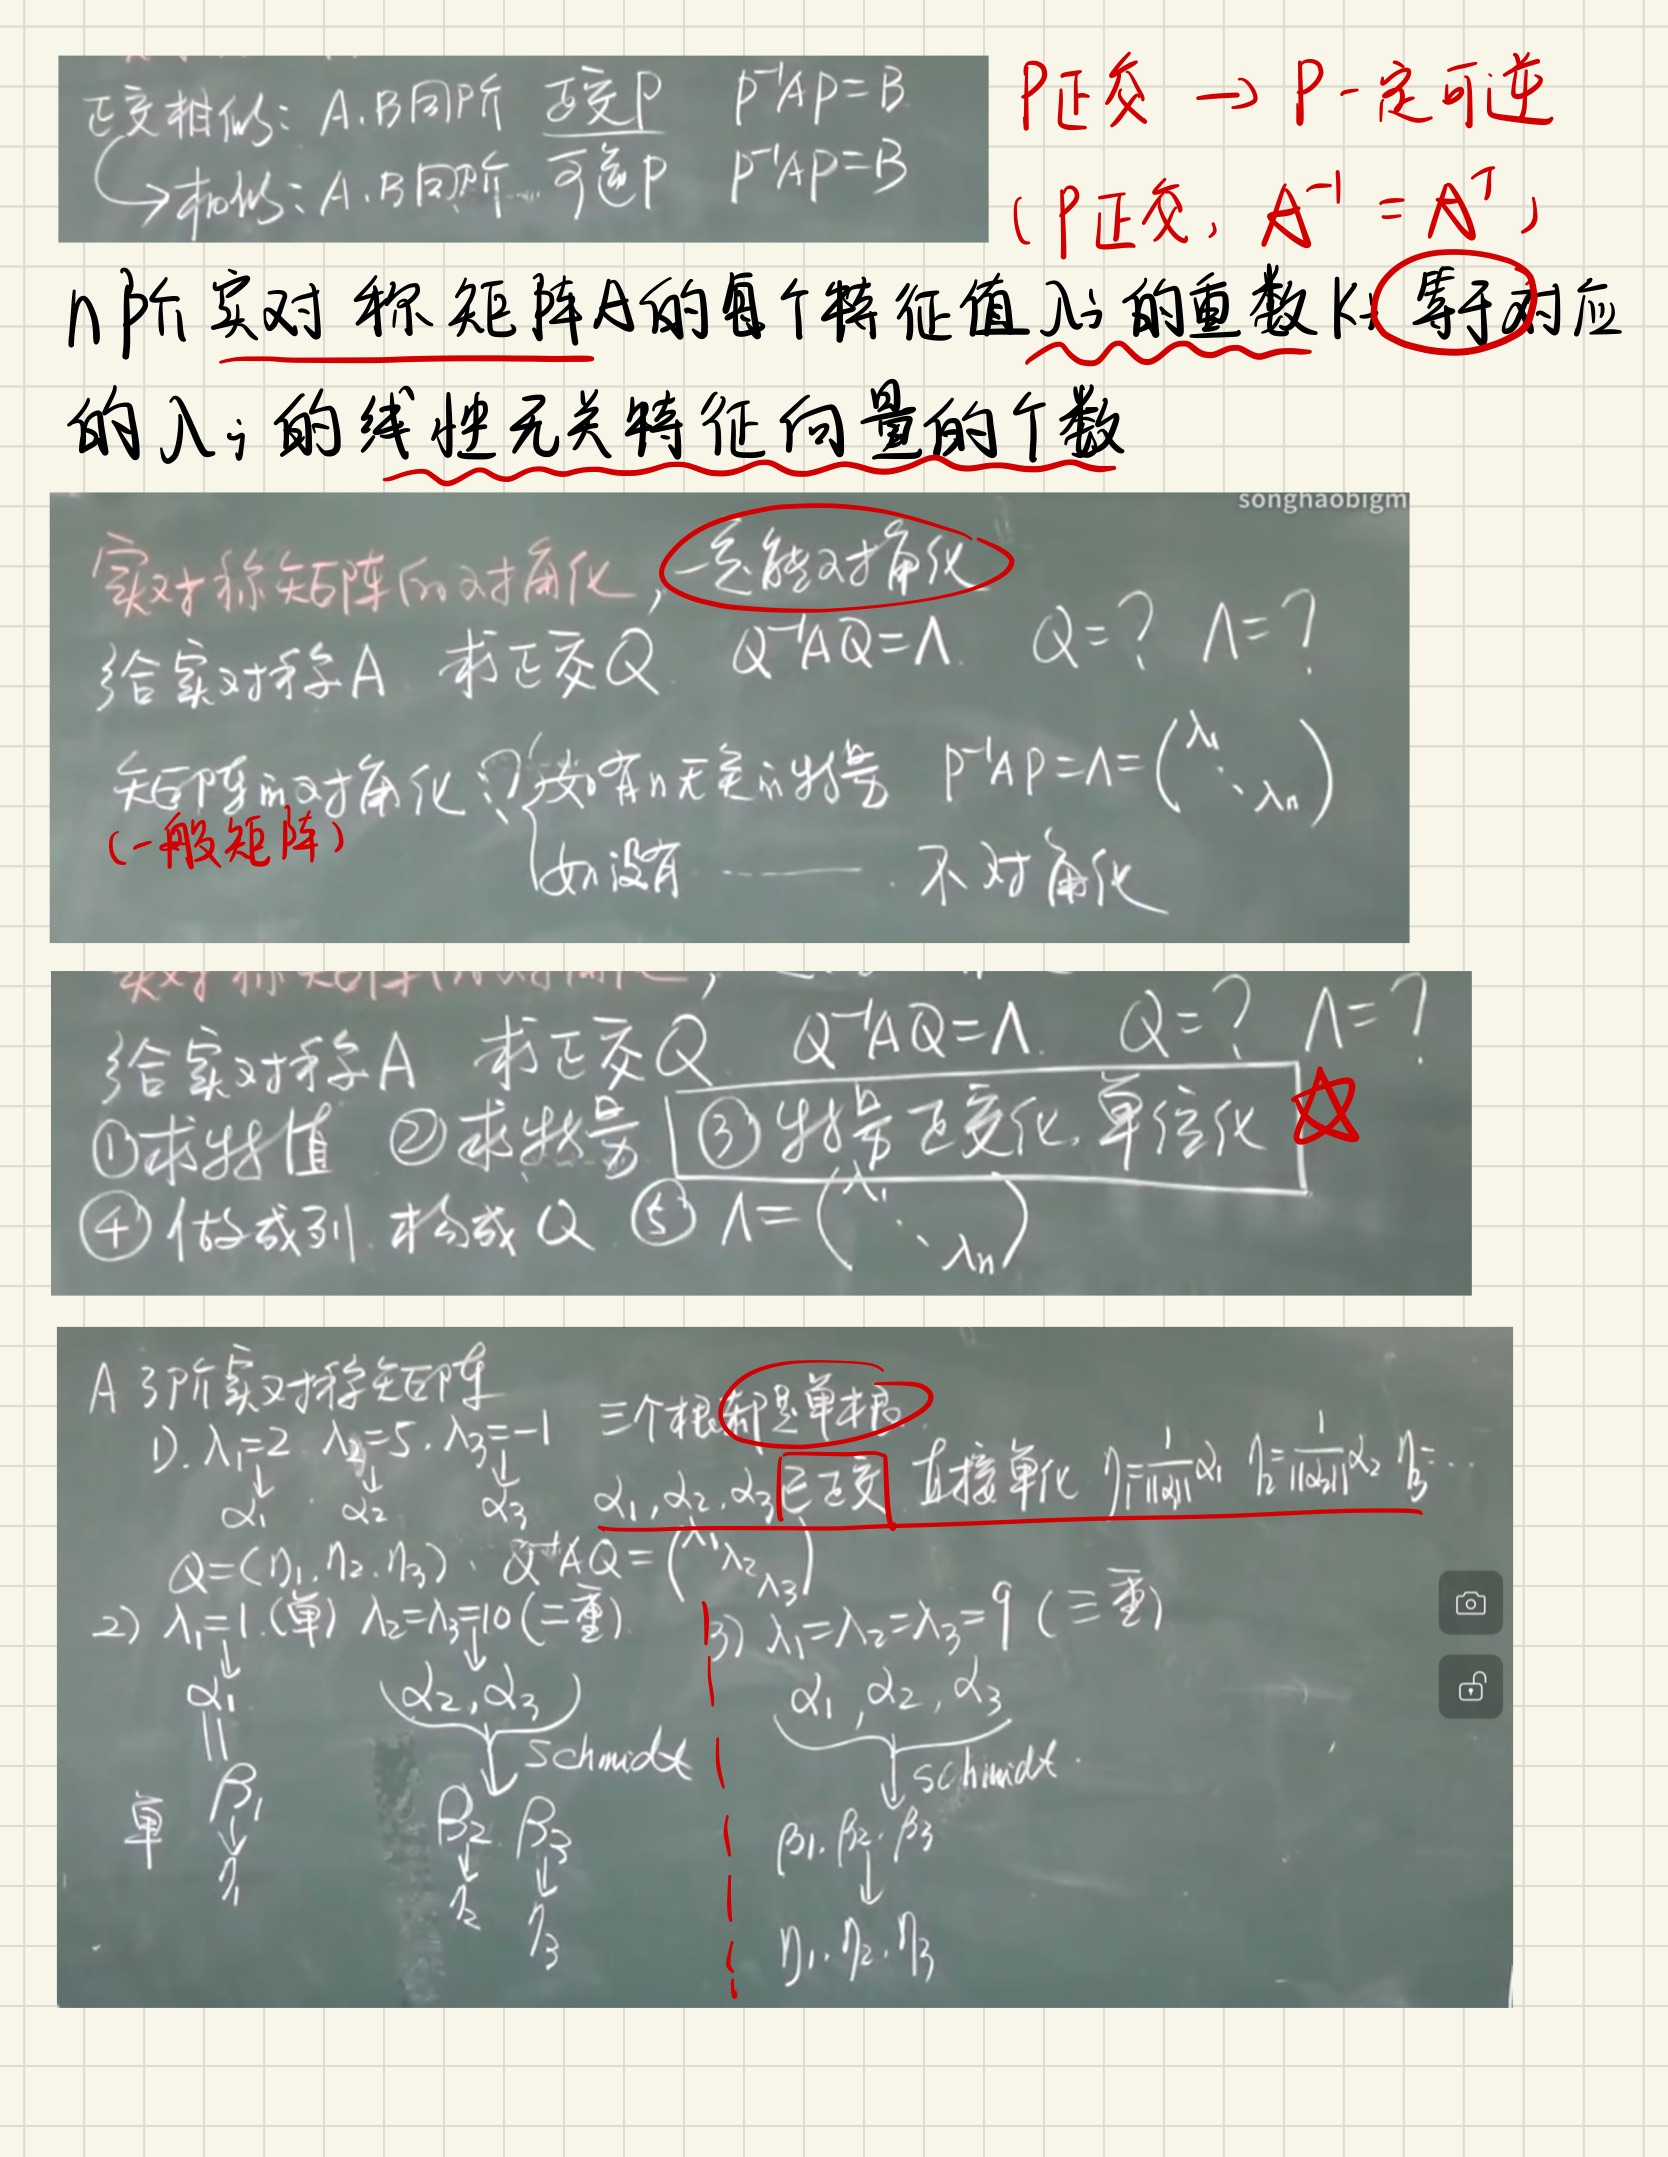 正交相似: A.B同阶 正交P P⁻¹AP=B
→相似: A.B同阶 可逆P P⁻¹AP=B
P正交 → P一定可逆
(P正交, A⁻¹ = Aᵀ)
n阶实对称矩阵A的每个特征值λi的重数K 等于对应
的λi的线性无关特征向量的个数
songhaobigm
实对称矩阵的对角化, 一定能对角化
给实对称A 求正交Q Q⁻¹AQ=Λ. Q=? Λ=?
矩阵的对角化? 如有n无关的特量 P⁻¹AP=Λ=(λ₁ ⋱ λn)
(一般矩阵)
如没有 —— 不对角化
给实对称A 求正交Q Q⁻¹AQ=Λ. Q=? Λ=?
①求特值 ②求特量 ③特量正交化.单位化
④做成列.构成Q ⑤Λ=(λ₁ ⋱ λn)
A 3阶实对称矩阵
1). λ₁=2 λ₂=5. λ₃=-1 三个根都是单根.
↓ ↓ ↓
α₁ α₂ α₃ α₁,α₂.α₃已正交 直接单化 η₁=1/||α₁||α₁ η₂=1/||α₂||α₂ η₃=...
Q=(η₁.η₂.η₃). Q⁻¹AQ=(λ₁ λ₂ λ₃)
2) λ₁=1.(单) λ₂=λ₃=10(二重).
↓ ↓
α₁ α₂,α₃
|| ↓ schmidt
β₁ β₂. β₃
单 ↓ ↓ ↓
η₁ η₂ η₃
3) λ₁=λ₂=λ₃=9 (三重)
α₁,α₂,α₃
↓ schmidt.
β₁.β₂.β₃
↓
η₁.η₂.η₃